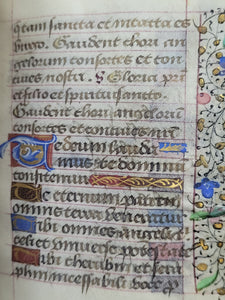 q̃tam sancta et intacta es
virgo. Gaudent chori an
gelorum consortes et con
cives nostri. Gloria pri
et filio et spiritui sancto.
Gaudent chori angelorum
consortes et concives nri
Te deum lauda
mus te dominu
confitemur
Te eternum patrem
omnis terra veneratur
Tibi omnes angeli
celi et universe potestates
Tibi cherubin et sera
phin incessabili voce p